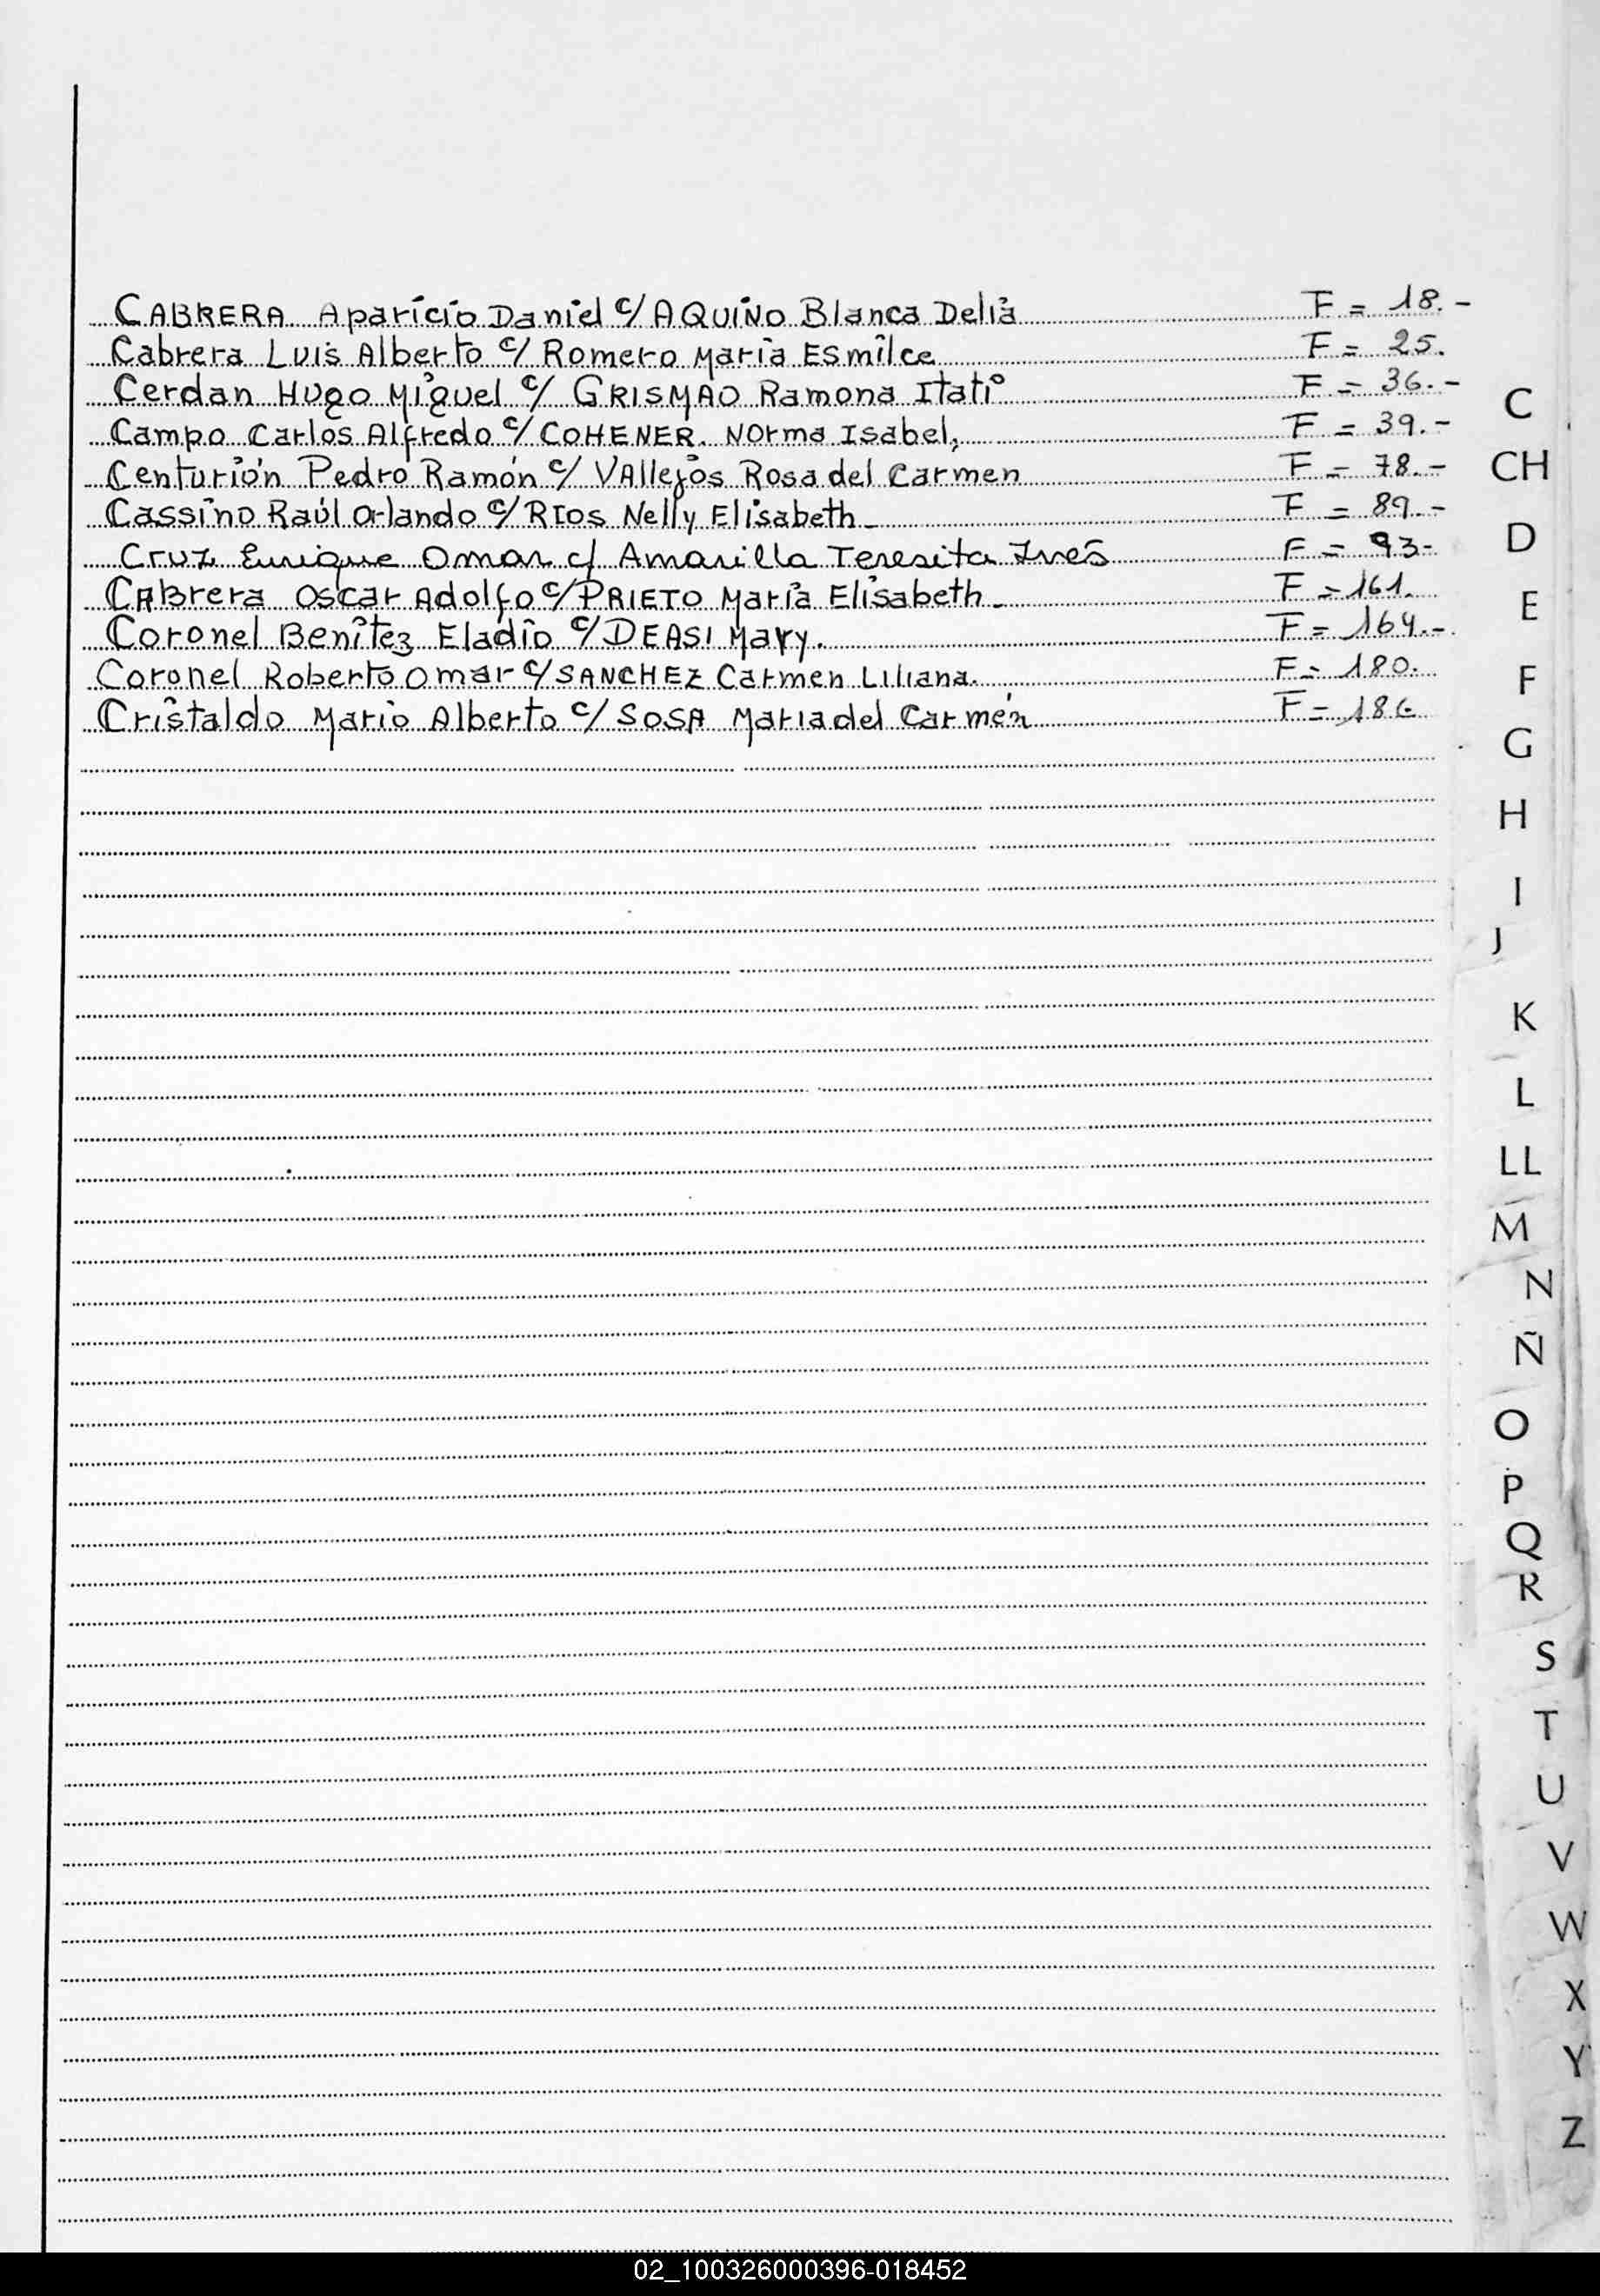 CABRERA Aparicio Daniel c/ AQUINO Blanca Delia F = 18.-
Cabrera Luis Alberto c/ Romero Maria Esmilce F = 25.
Cerdan Hugo Miguel c/ GRISMAO Ramona Itati F = 36.-
Campo Carlos Alfredo c/ COHENER. Norma Isabel, F = 39.-
Centurión Pedro Ramón c/ Vallejos Rosa del Carmen F = 78.-
Cassino Raúl Orlando c/ RIOS Nelly Elisabeth - F = 89.-
Cruz Enrique Omar c/ Amarilla Teresita Inés F = 93-
CABrera Oscar Adolfo c/ PRIETO María Elisabeth - F = 161.
Coronel Benitez Eladio c/ DEASI Mary. F = 164.-
Coronel Roberto Omar c/ SANCHEZ Carmen Liliana. F = 180.
Cristaldo Mario Alberto c/ SOSA Maria del Carmen F = 186
C
CH
D
E
F
G
H
I
J
K
L
LL
M
N
Ñ
O
P
Q
R
S
T
U
V
W
X
Y
Z
02_100326000396-018452